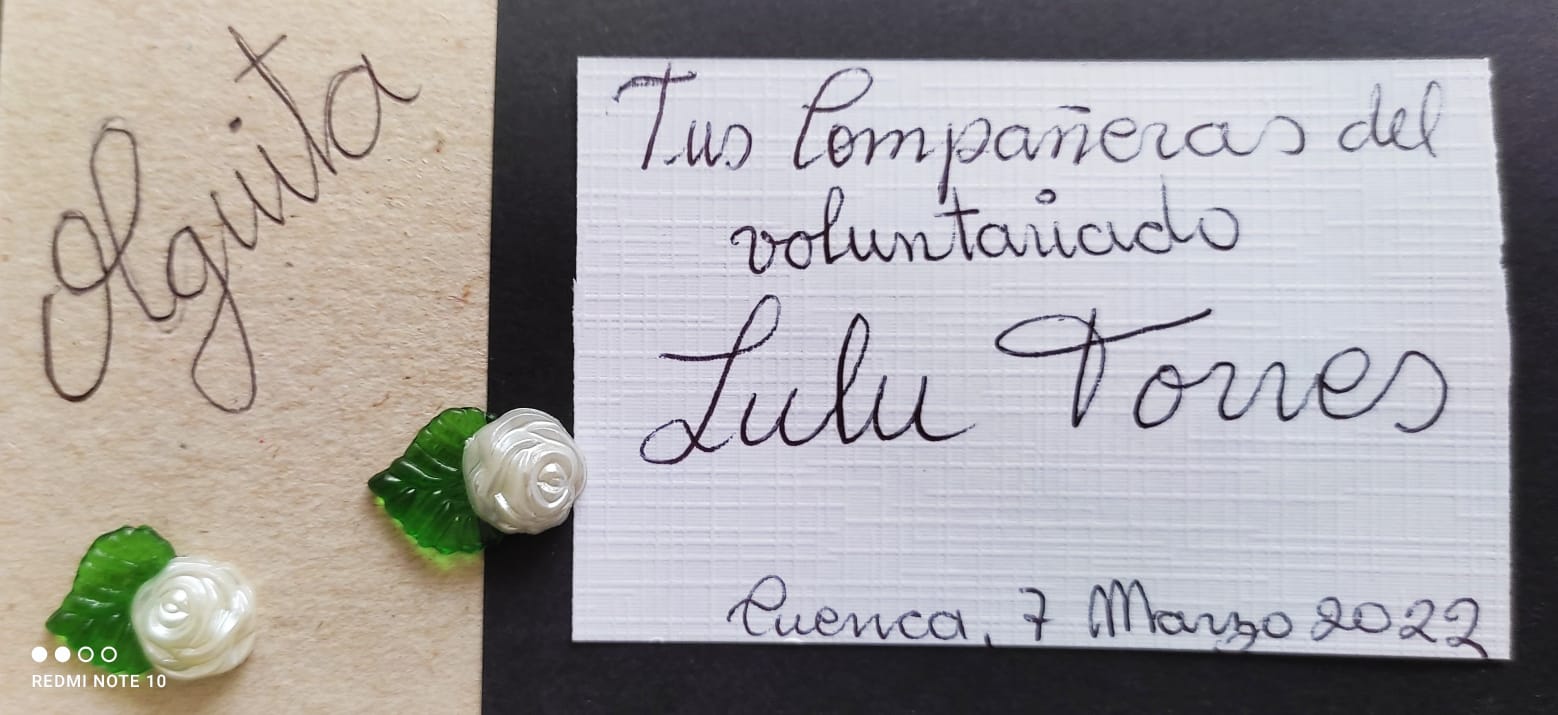 Olguita
Tus Compañeras del
voluntariado
Lulu Torres
Cuenca, 7 Marzo 2022
REDMI NOTE 10